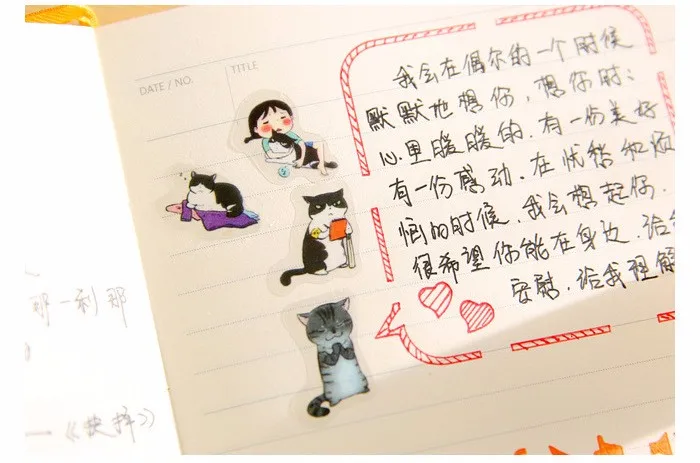 DATE / NO.
TITLE
我会在偶尔的一个时候
默默地想你，想你时：
心里暖暖的．有一份美好
有一份感动．在忧愁和烦
恼的时候．我会想起你．
很希望你能在身边．给
安慰．给我理解
那一刹那
一《抉择》